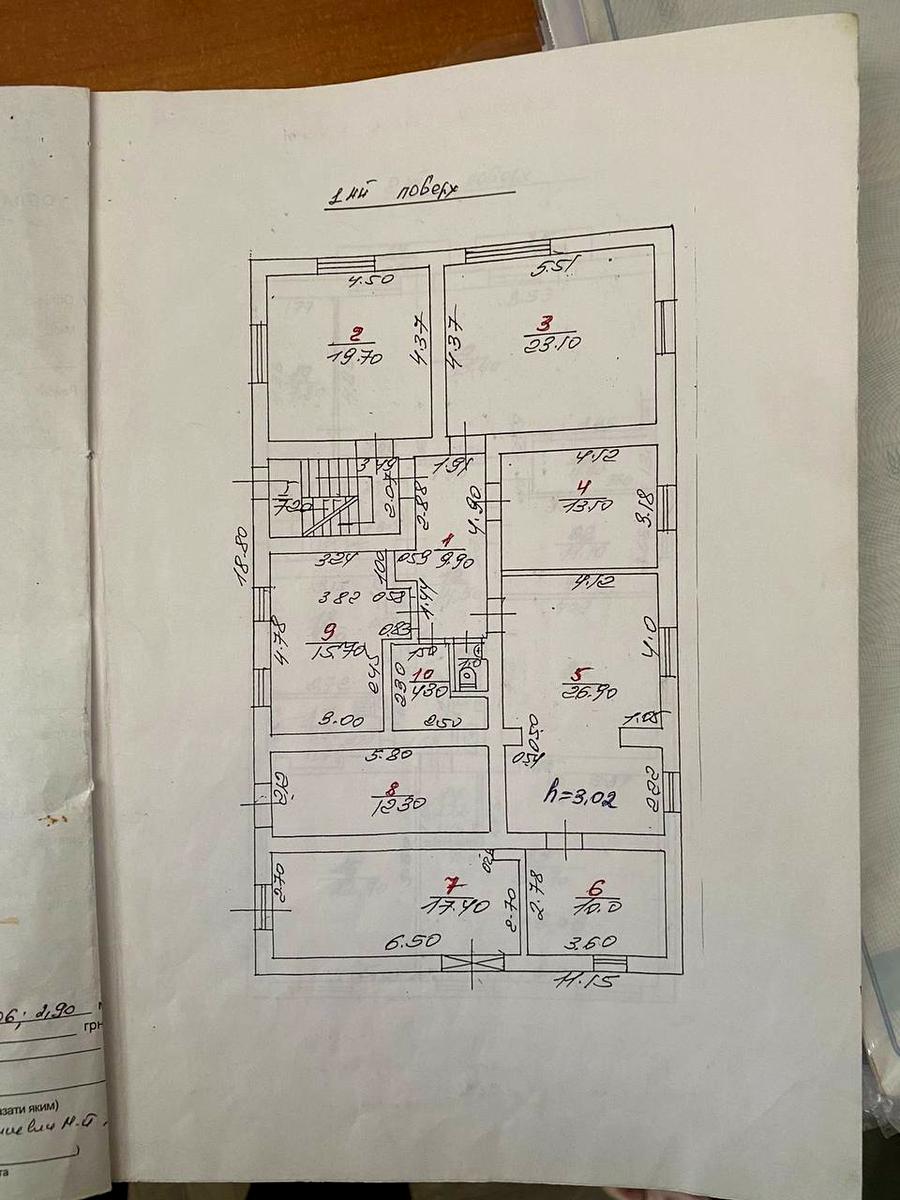 1ий поверх
4.50
5.51
2
19.70
4.37
4.37
3
23.10
3.49
1.91
4.12
7.20
2.07
2.88
4.90
4
13.10
3.18
18.80
1
9.90
3.24
1.00
0.59
4.12
3.82
0.58
1.44
9
15.70
4.78
0.83
2.45
1.50
1.0
10
4.30
2.30
5
26.90
4.0
3.00
2.50
0.50
1.05
0.54
5.80
8
12.30
2.12
h=3.02
2.22
2.70
7
17.40
2.70
2.78
6
10.0
6.50
3.60
11.15
06; 2,90
грн
зати яким)